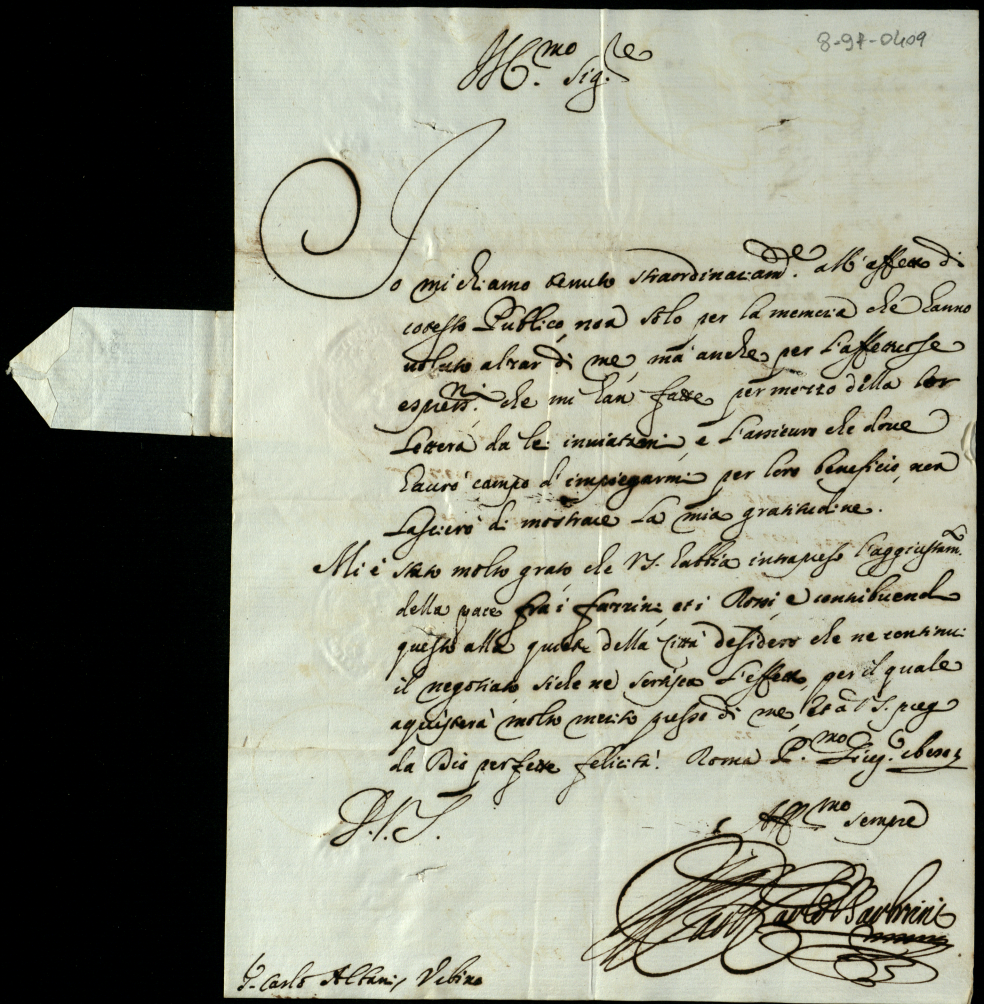 8-97-0409
Ill.mo Sig.re
Io mi chiamo tenuto straordinariam.te all'affetto di
cotesto Publico, non solo per la memoria che hanno
voluto alzar di me, mà anche per l'affettuose
espress.ni che mi han fatte per mezzo della lor
lettera da lei inviatami, e l'assicuro che dove
haurò campo d'impiegarmi per loro beneficio, non
lascierò di mostrare la mia gratitudine.
Mi è stato molto grato che VS. habbia intrapreso l'aggiustam.to
della pace frà i et i Rossi, e contribuendo
questo alla quiete della Città desidero che ne continui
il negotiato siche ne sortisca l'effetto, per il quale
aquisterà molto merito presso di me, et à VS. prego
da Dio perfette felicità. Roma P.mo
Aff.mo sempre
D.V.S.
Barberini
S. Carlo Albani, Urbino